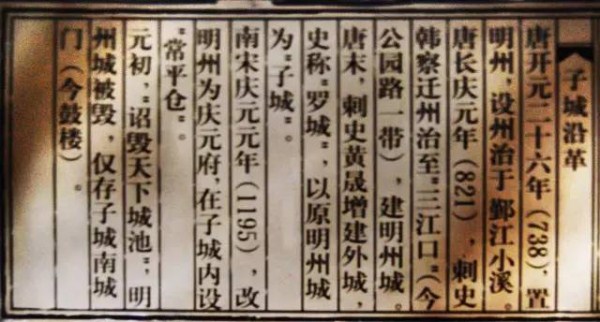 子城沿革
唐开元二十六年(738),置
明州,设州治于鄞江小溪。
唐长庆元年(821),刺史
韩察迁州治至“三江口”(今
公园路一带),建明州城。
唐末,刺史黄晟增建外城,
史称“罗城”,以原明州城
为“子城”。
南宋庆元元年(1195),改
明州为庆元府,在子城内设
“常平仓”。
元初,“诏毁天下城池”,明
州城被毁,仅存子城南城
门(今鼓楼)。